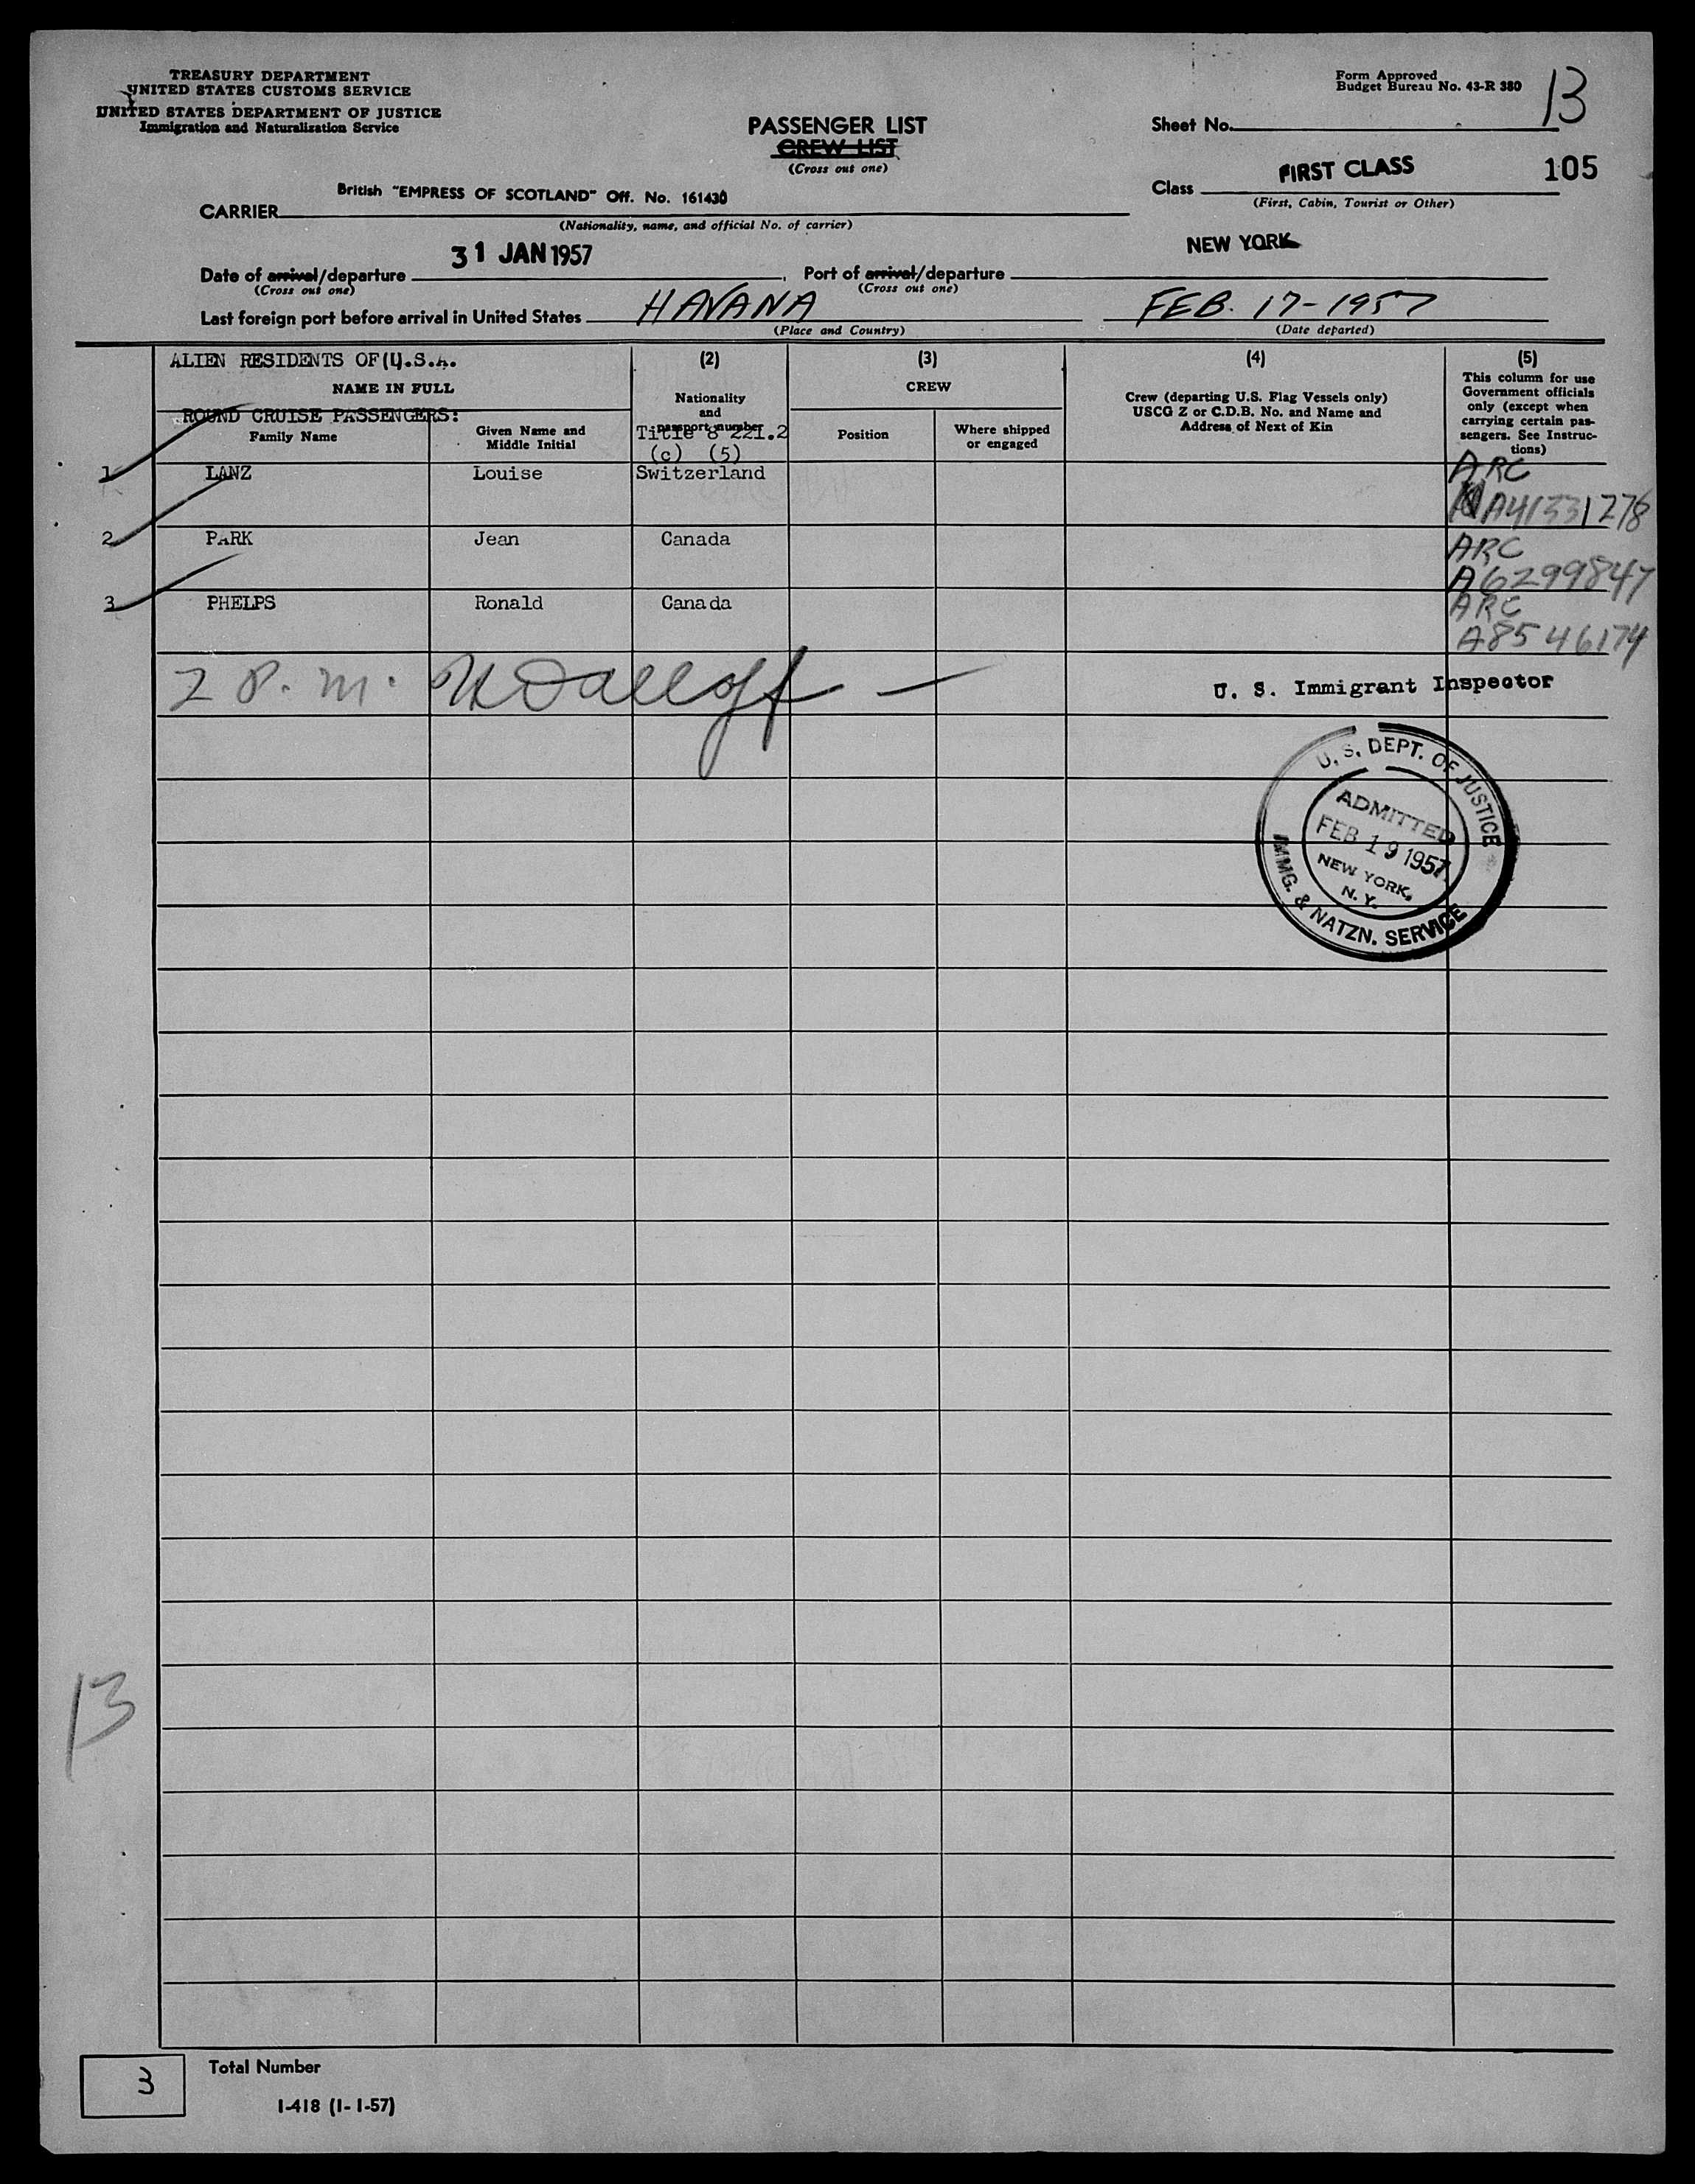 TREASURY DEPARTMENT
UNITED STATES CUSTOMS SERVICE
UNITED STATES DEPARTMENT OF JUSTICE
Immigration and Naturalization Service
Form Approved
Budget Bureau No. 43-R 380
PASSENGER LIST
CREW LIST
(Cross out one)
Sheet No. 13
105
Class FIRST CLASS
(First, Cabin, Tourist or Other)
CARRIER British "EMPRESS OF SCOTLAND" Off. No. 161430
(Nationality, name, and official No. of carrier)
Date of arrival/departure 31 JAN 1957, Port of arrival/departure NEW YORK
(Cross out one) (Cross out one)
Last foreign port before arrival in United States HAVANA FEB. 17-1957
(Place and Country) (Date departed)
ALIEN RESIDENTS OF (1) U.S.A.
NAME IN FULL
ROUND CRUISE PASSENGERS:
Family Name
Given Name and
Middle Initial
(2)
Nationality
and
passport number
Title 8 221.2
(c) (5)
(3)
CREW
Position
Where shipped
or engaged
(4)
Crew (departing U.S. Flag Vessels only)
USCG Z or C.D.B. No. and Name and
Address of Next of Kin
(5)
This column for use
Government officials
only (except when
carrying certain pas-
sengers. See Instruc-
tions)
1 LANZ Louise Switzerland ARC
A41331278
2 PARK Jean Canada ARC
A6299847
3 PHELPS Ronald Canada ARC
A8546174
2 P.m.
U. S. Immigrant Inspector
U. S. DEPT. OF JUSTICE
ADMITTED
FEB 19 1957
NEW YORK,
N. Y.
IMMG. & NATZN. SERVICE
13
3 Total Number
I-418 (1-1-57)